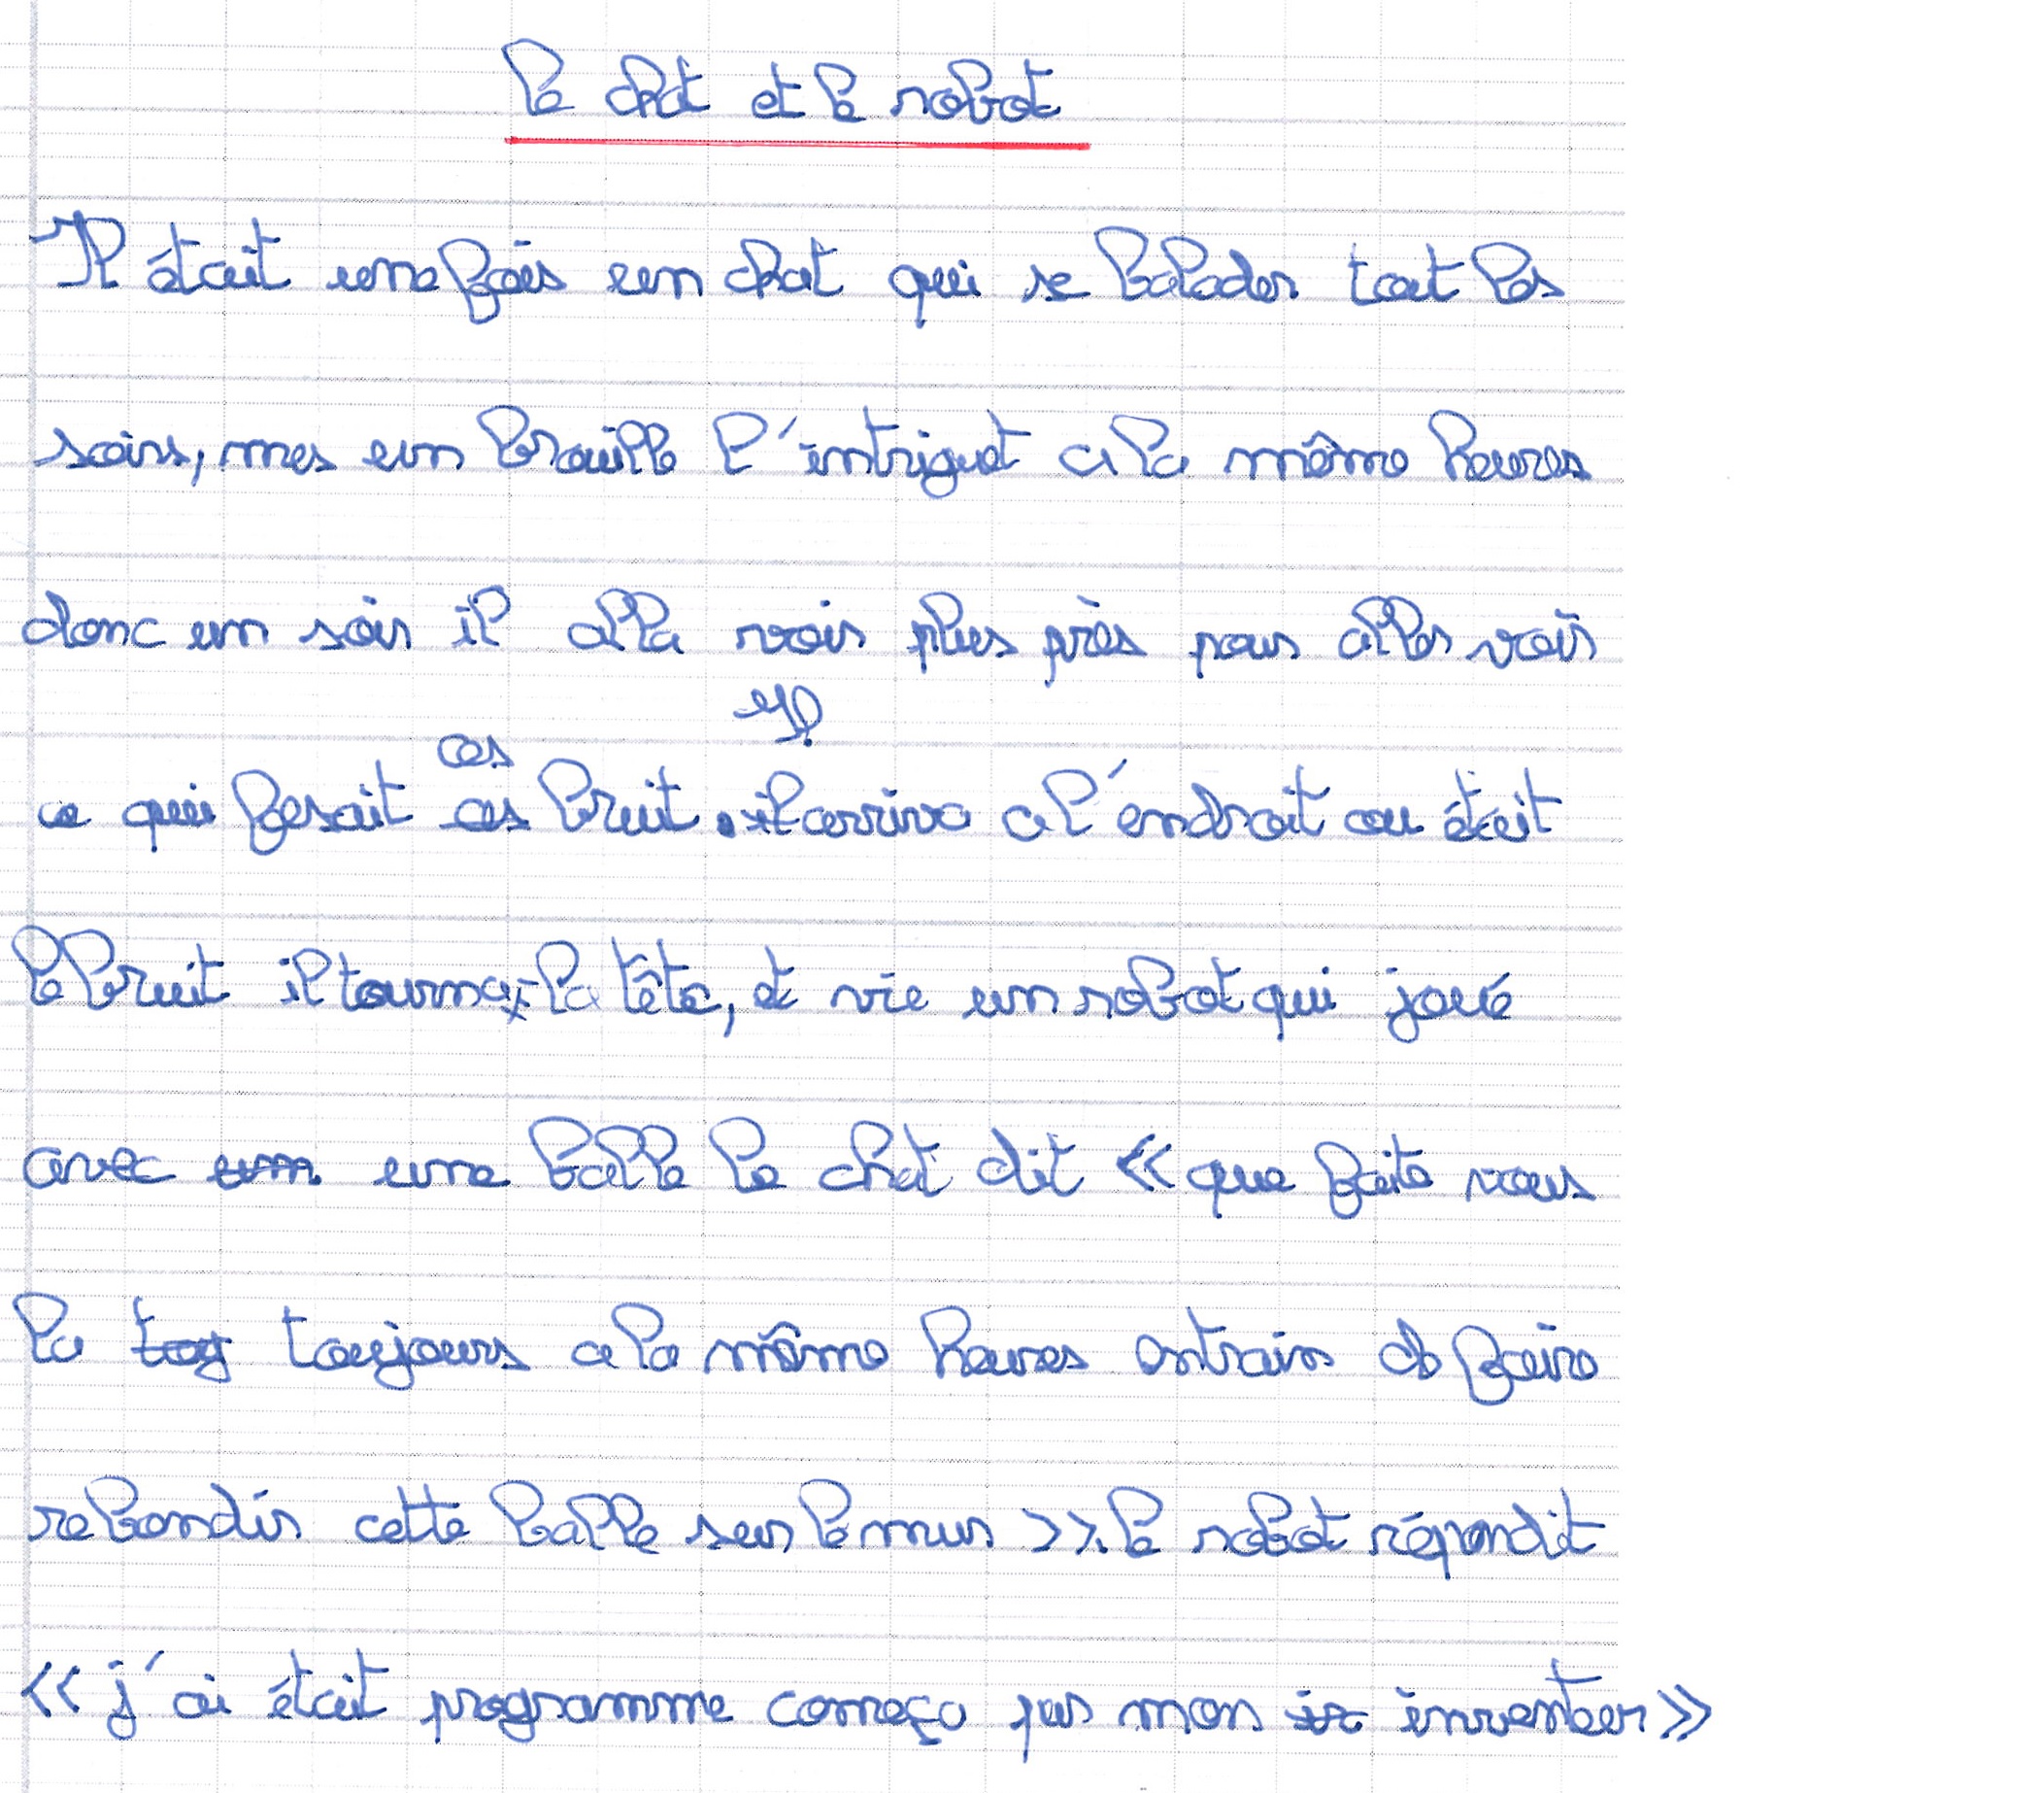 le chat et le robot
Il était une fois un chat qui se balader tout les
soirs, mes un brouille l'intriguet a la même heures
donc un soir il alla voir plus près pour aller voir
ces Il
ce qui fesait ces bruit . il arriva a l'endroit ou était
le bruit il tourna la tête, et vie un robot qui joué
avec un une balle le chat dit « que faite vous
la toj toujours a la même heures entrain de faire
rebondir cette balle sur le mur ». le robot répondit
« j'ai était programme começa par mon in inventeur »